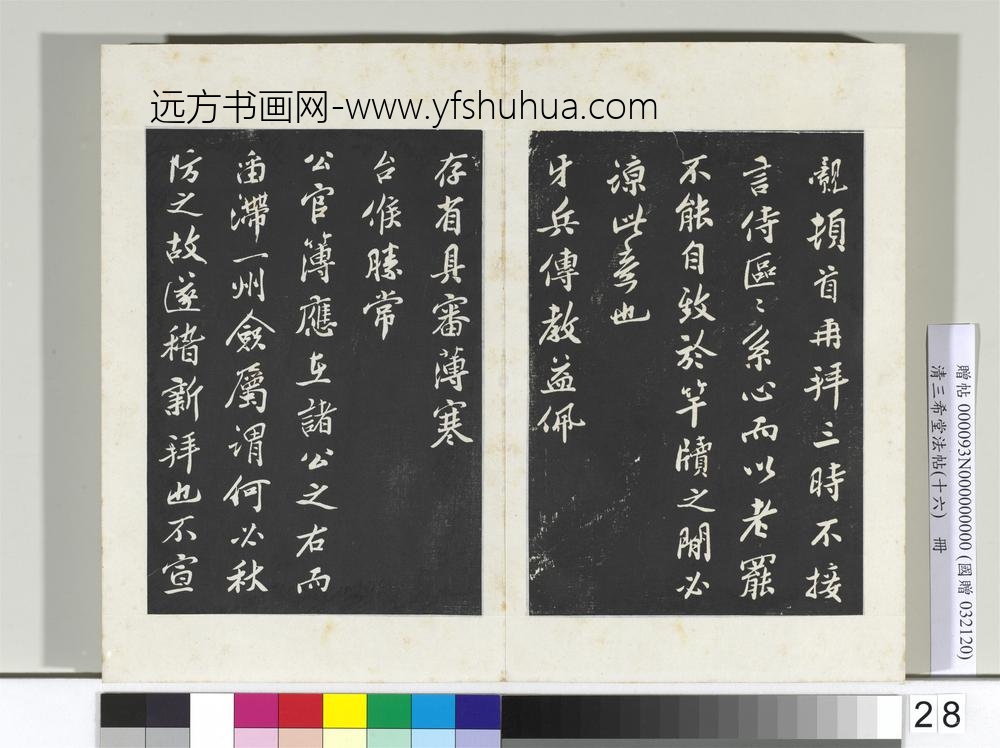 远方书画网-www.yfshuhua.com
覿頓首再拜三時不接
言侍區〻系心而以老罷
不能自致於竿牘之間必
諒此意也
牙兵傳教益佩
存省具審薄寒
台候勝常
公官簿應在諸公之右而
留滯一州僉屬謂何必秋
防之故遂稽新拜也不宣
贈帖 000093N000000000 (國贈 032120)
清三希堂法帖(十六) 冊
28